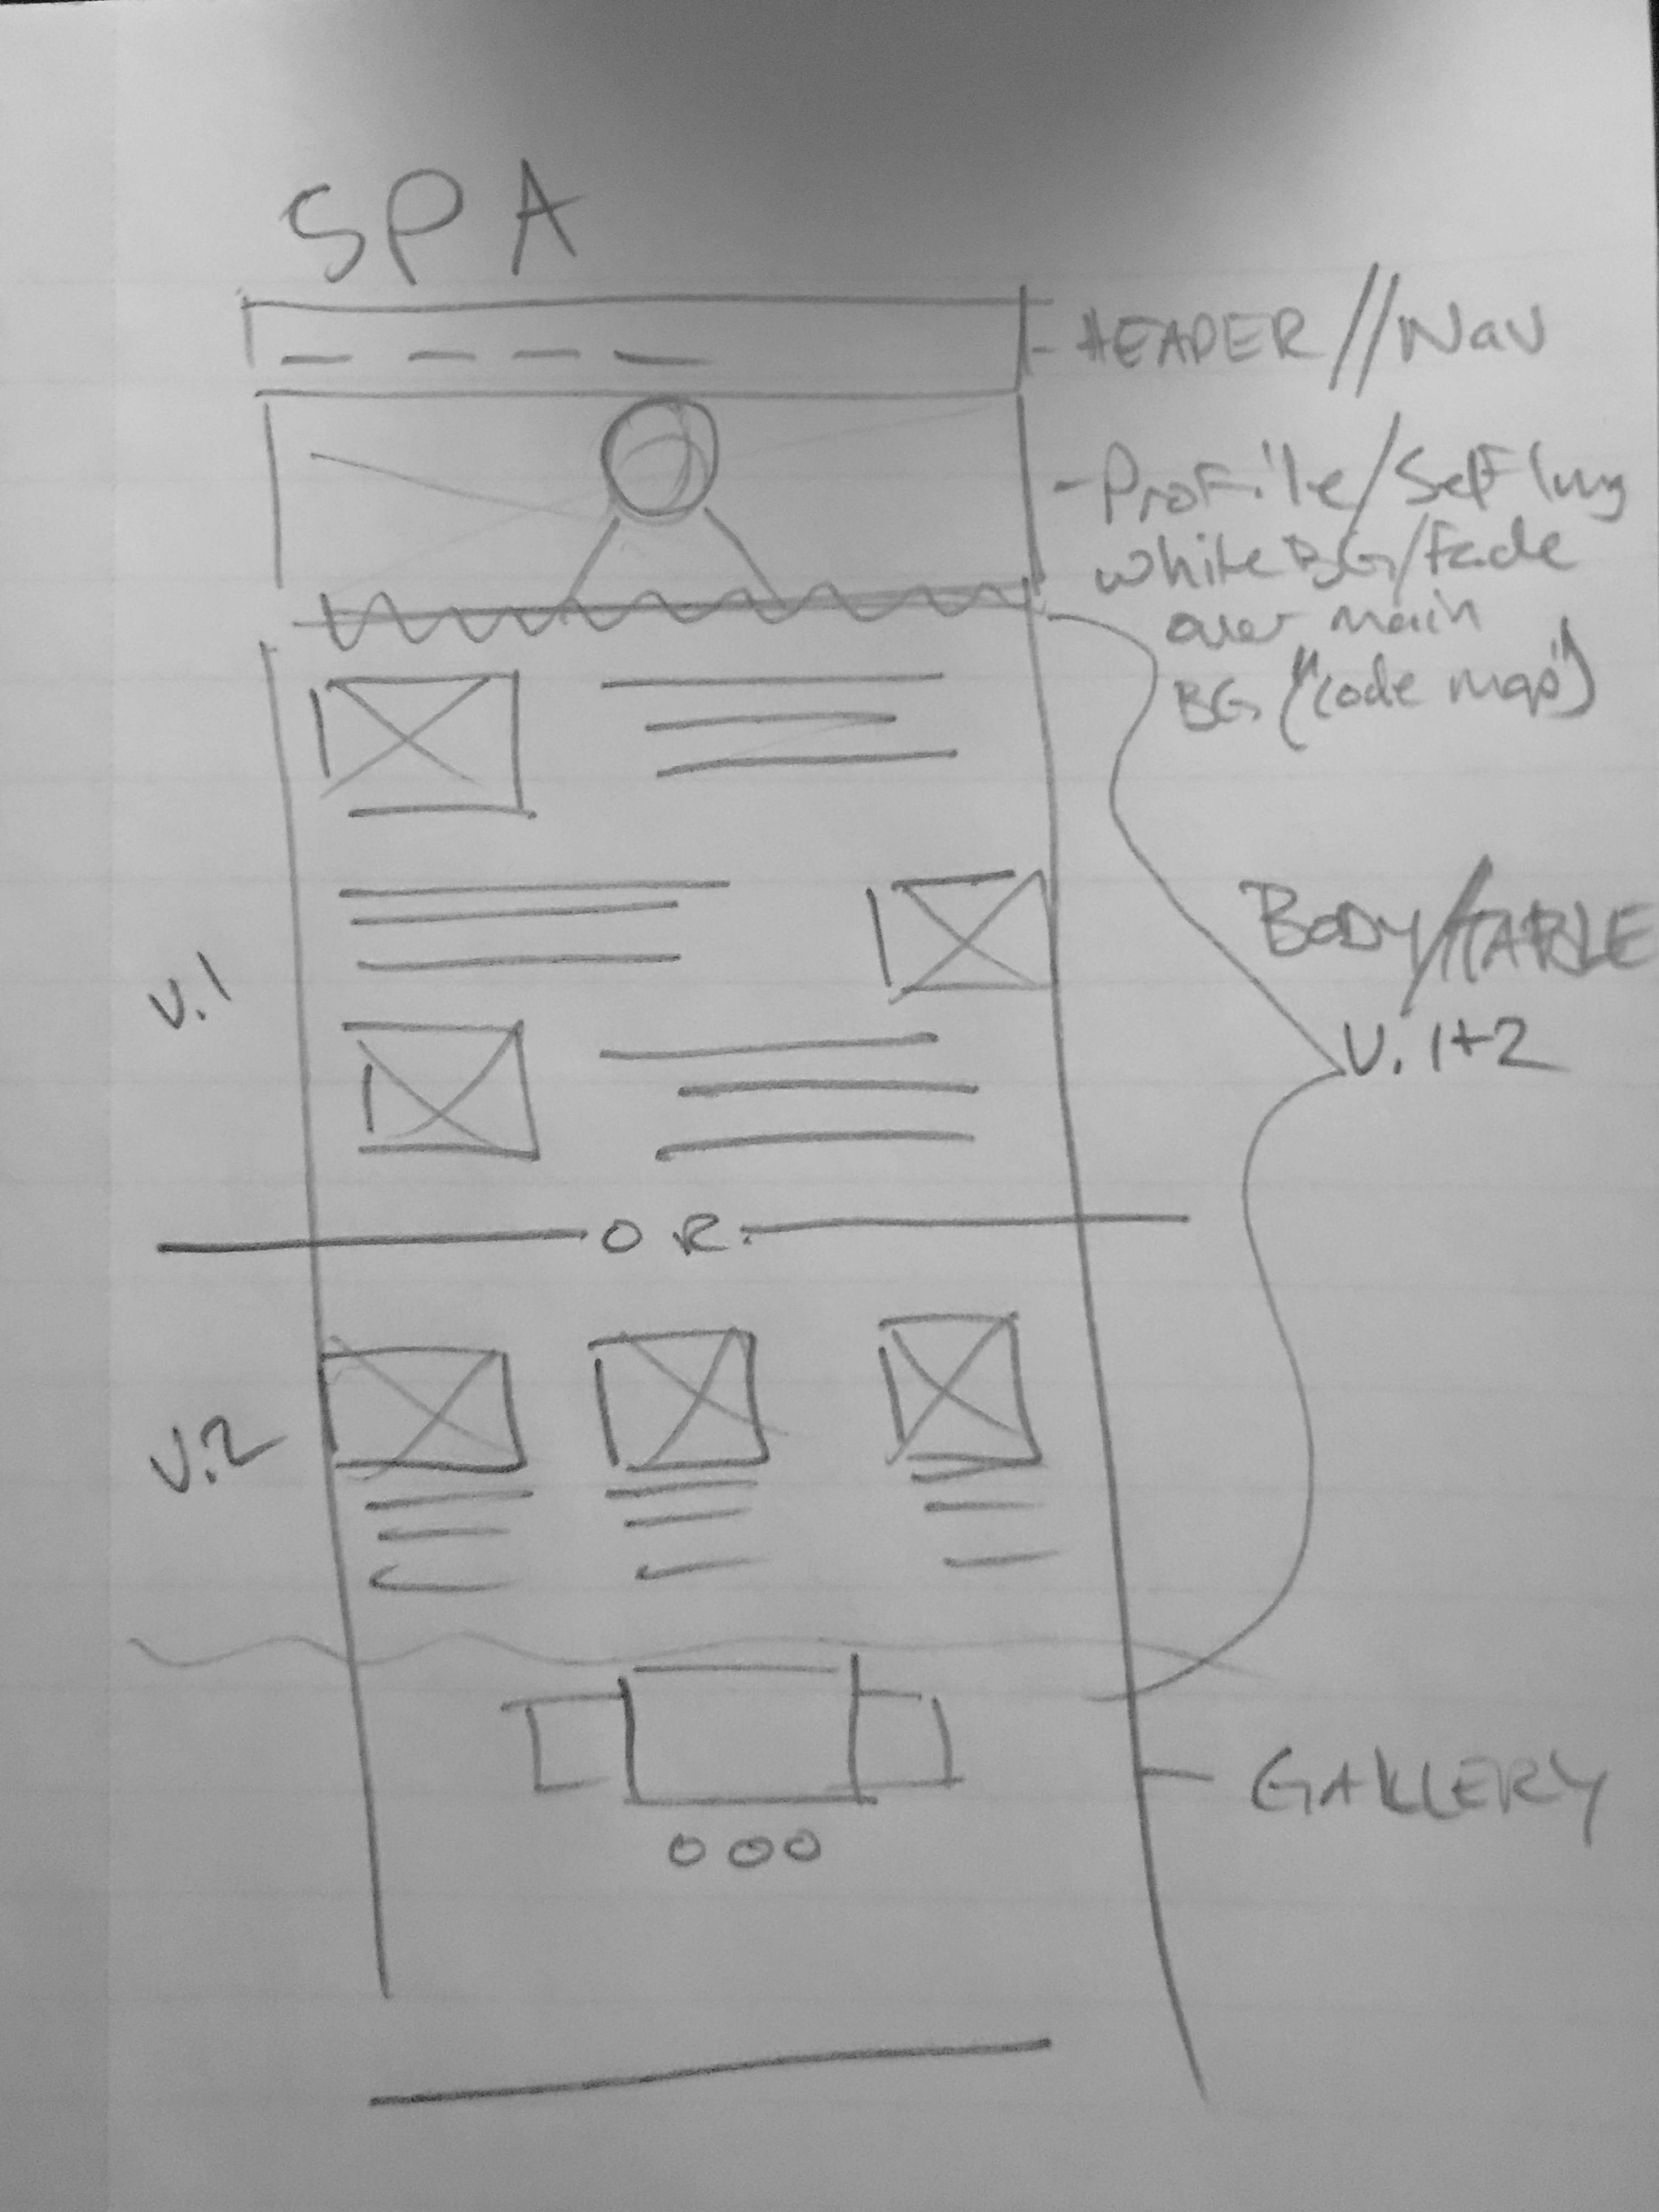 SPA
- HEADER // Nav
- Profile / Self Img
white BG / Fade
over main
BG ("code map")
BODY/TABLE
V. 1+2
V.1
OR
V.2
GALLERY